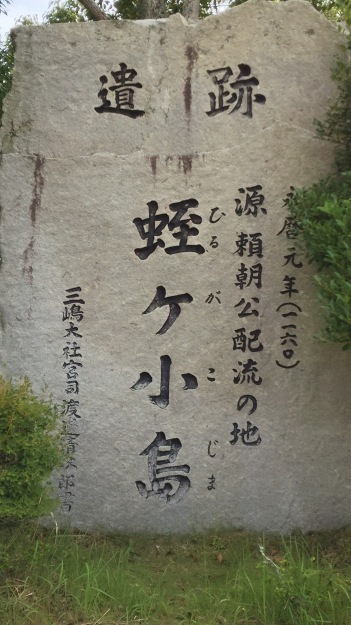 遺跡
永暦元年(一一六〇)
源頼朝公配流の地
ひるがこじま
蛭ケ小島
三嶋大社宮司